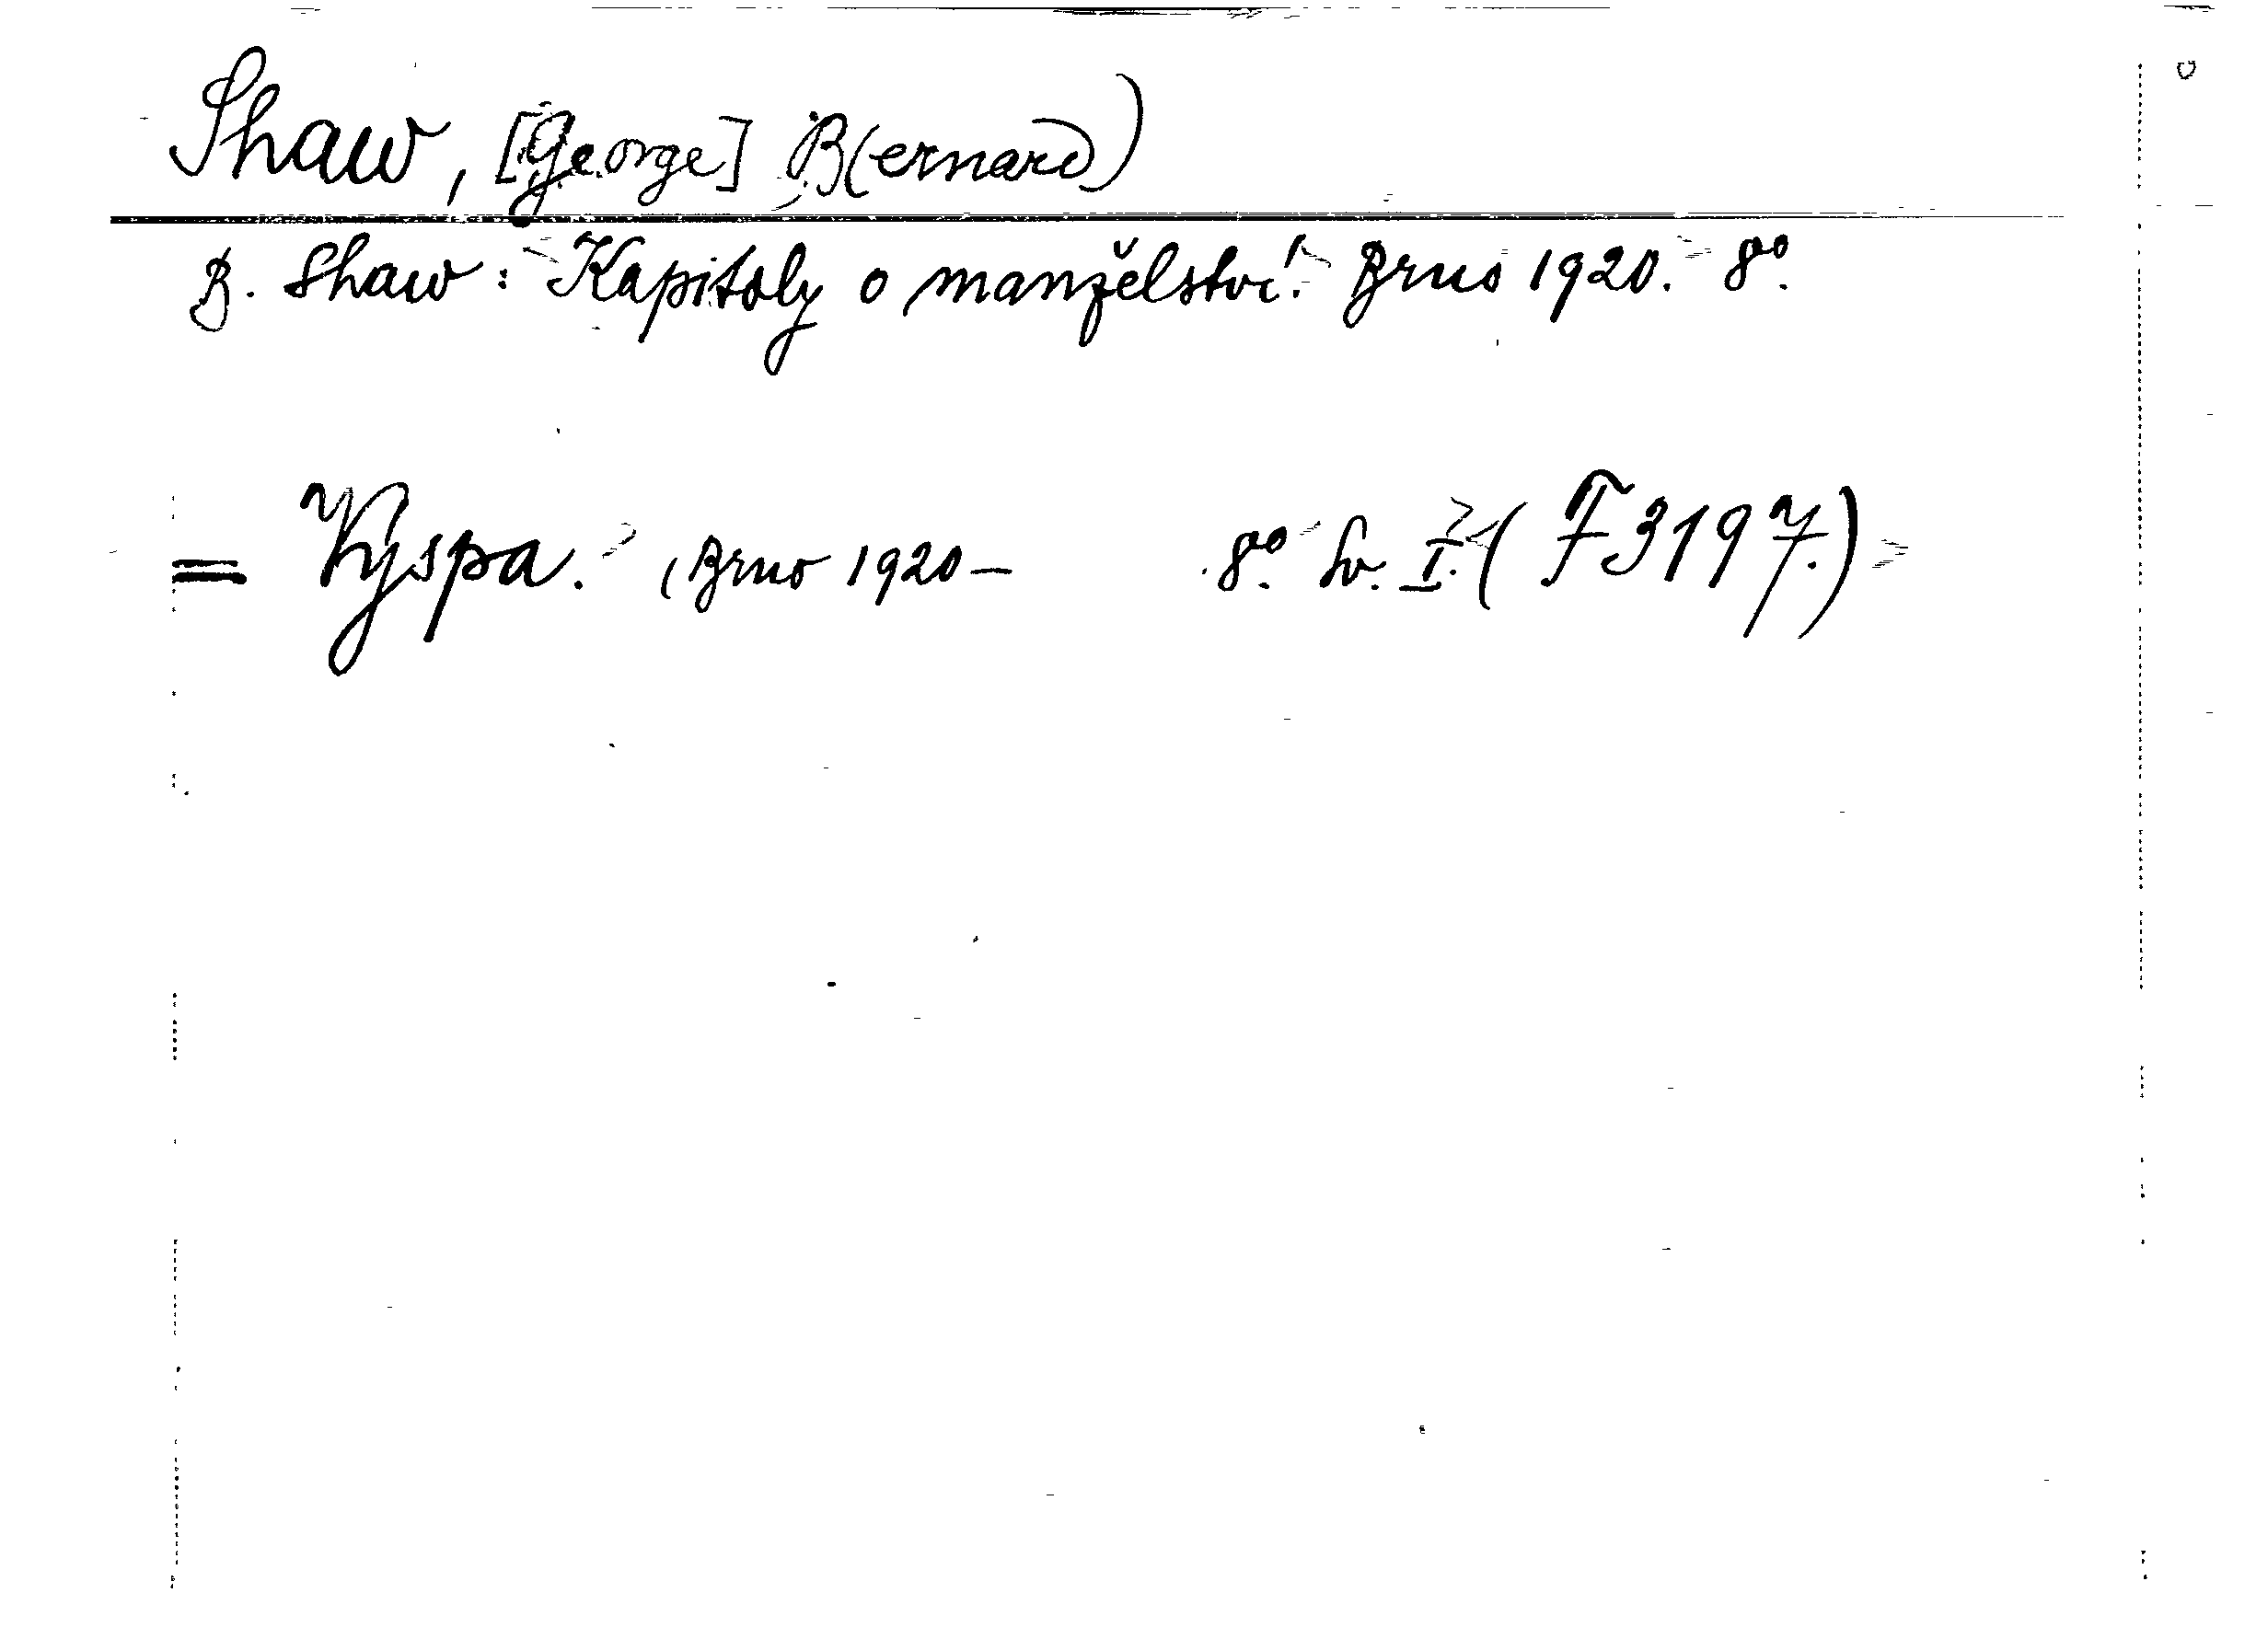 Shaw, [George] B(ernard)
B. Shaw: Kapitoly o manželství. Brno 1920. 8°.
= Vyspa. (Brno 1920 – 8°. Sv. I. (F 3197.)